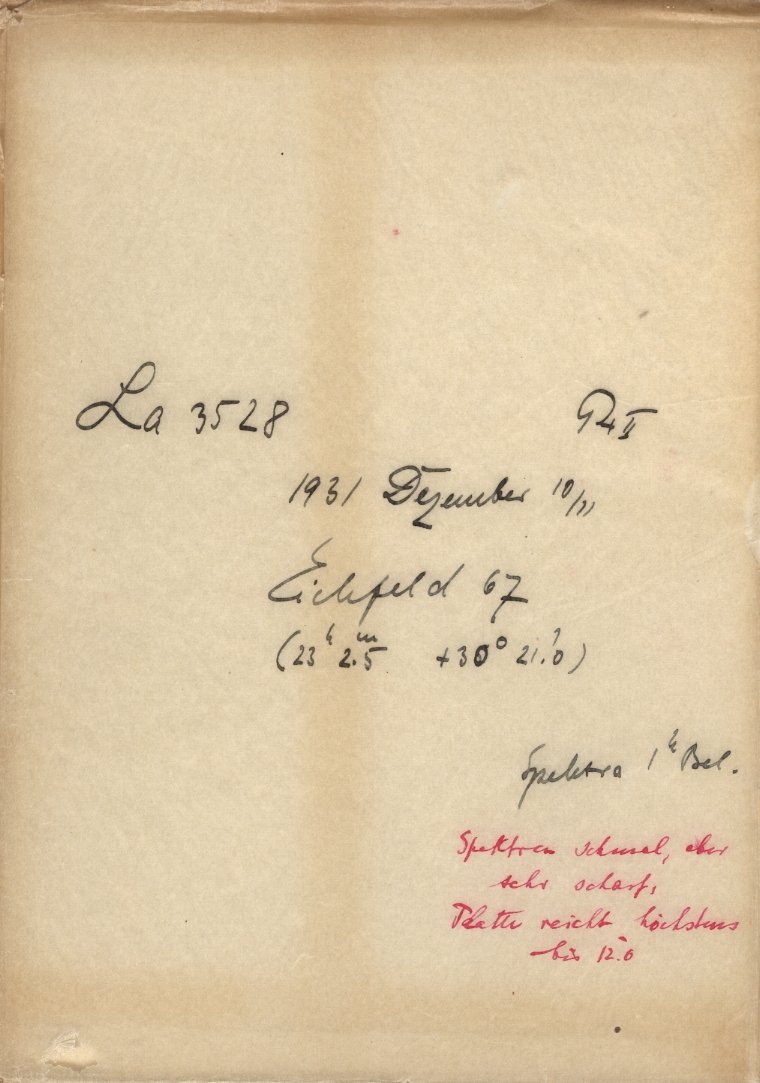 La 3528
1931 Dezember 10/11
Eichfeld 67
(23h 2.m5 +30° 21.'0)
Spektra 1h Bel.
Spektren schmal, aber
sehr scharf,
Platte reicht höchstens
bis 12.0